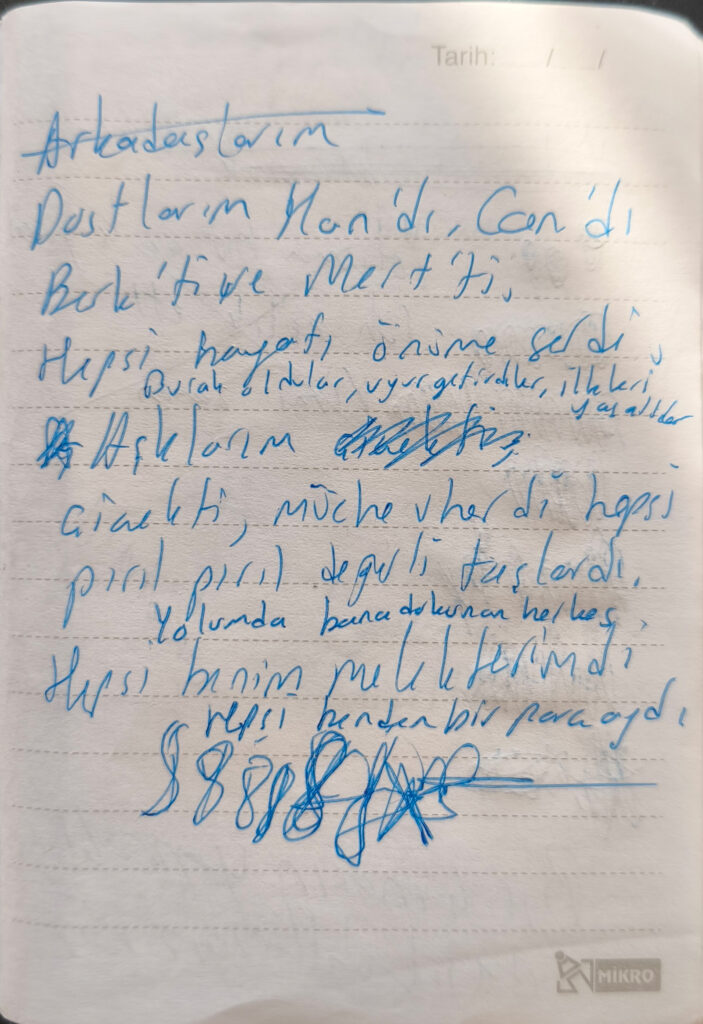 Tarih: / /
Arkadaşlarım
Dostlarım Han'dı, Can'dı
Berk'ti ve Mert'ti,
Hepsi hayatı önüme serdi,
Burak oldular, uğur getirdiler, ilkleri
yaşattılar
Aşklarım
Çiçekti, müchevherdi hepsi
pırıl pırıl değerli taşlardı,
Yolumda bana dokunan herkes,
Hepsi benim meleklerimdi
Hepsi benden bir parçaydı
MİKRO